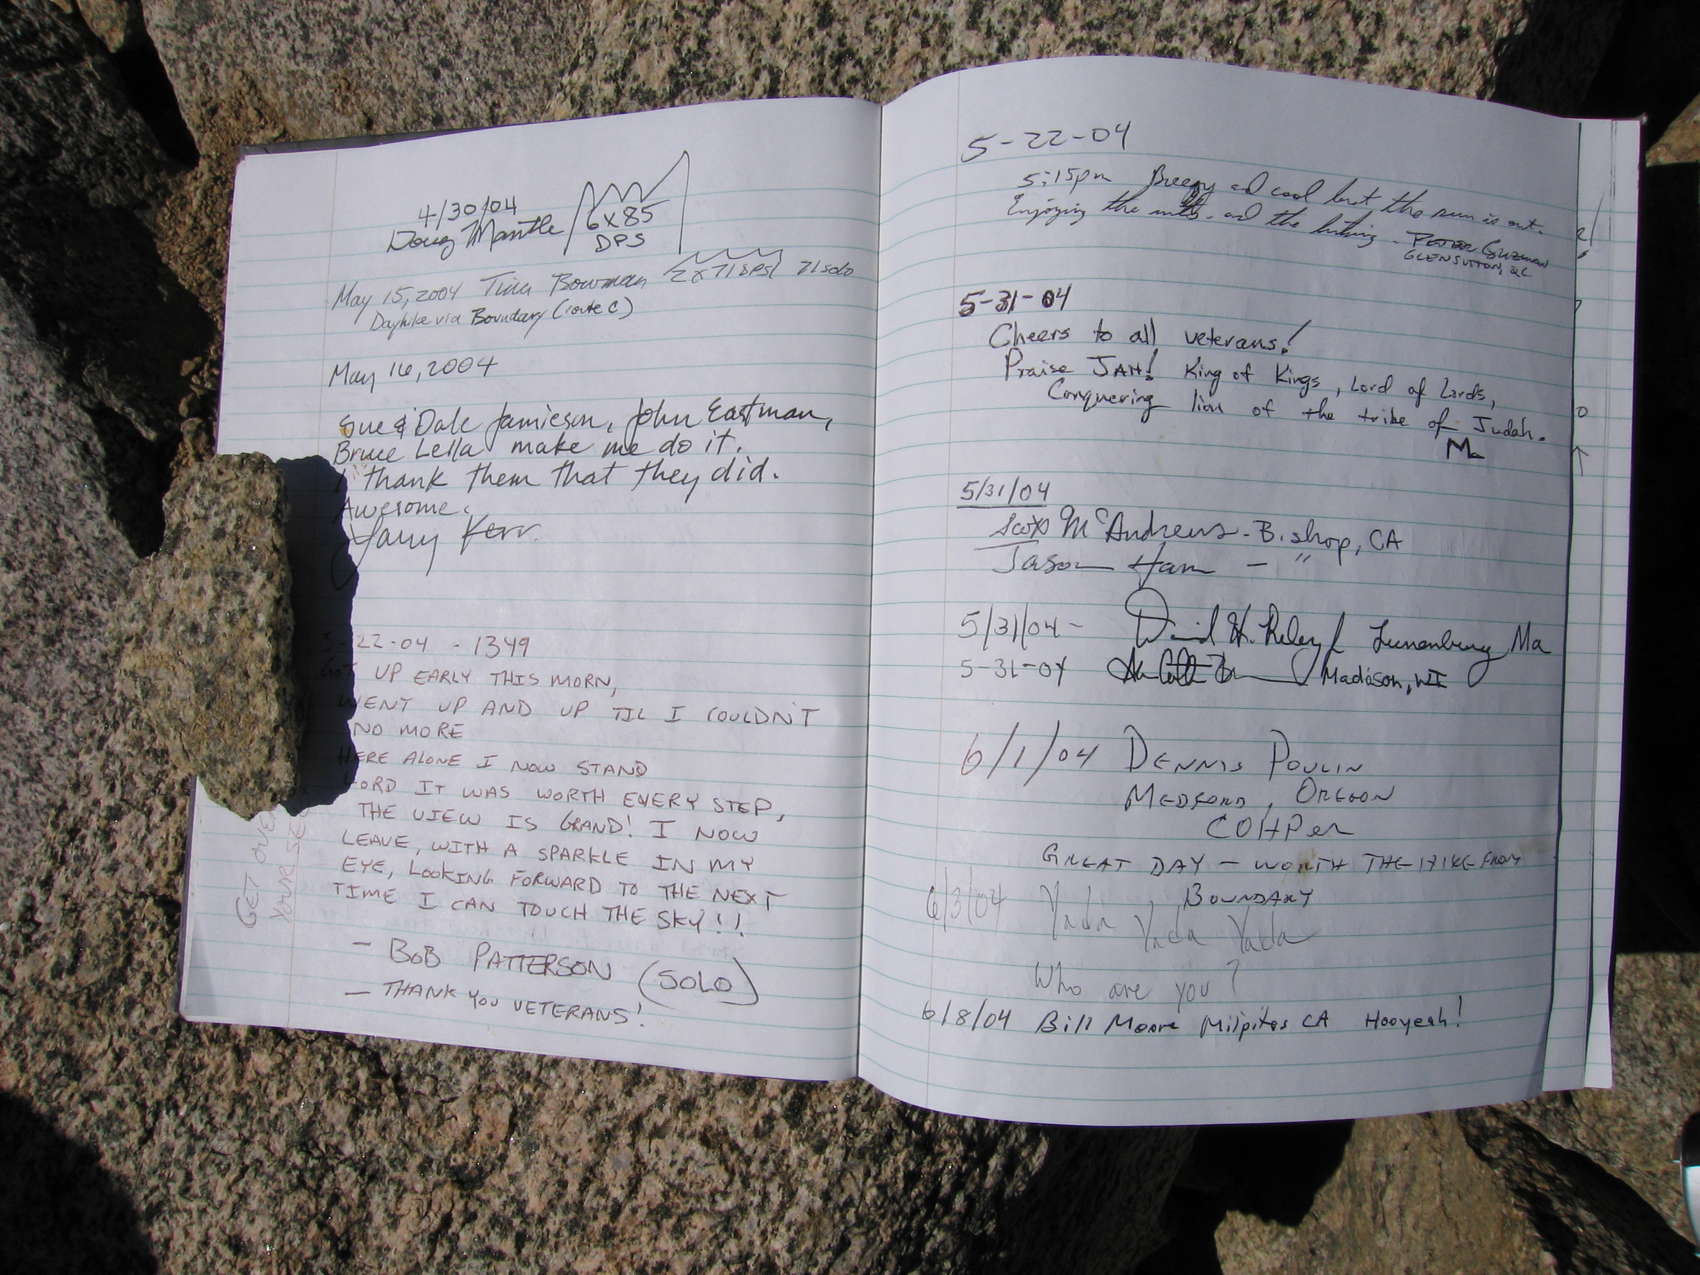 4/30/04
Doug Mantle
6X85
DPS
May 15, 2004 Tina Bowman 2x71 DPS 71 solo
Dayhike via Boundary (route C)
May 16, 2004
Sue & Dale Jamieson, John Eastman,
Bruce Lella make me do it.
I thank them that they did.
Awesome.
Kerr.
22-04 - 1349
UP EARLY THIS MORN,
WENT UP AND UP TIL I COULDN'T
NO MORE
HERE ALONE I NOW STAND
LORD IT WAS WORTH EVERY STEP,
THE VIEW IS GRAND! I NOW
LEAVE, WITH A SPARKLE IN MY
EYE, LOOKING FORWARD TO THE NEXT
TIME I CAN TOUCH THE SKY!!
- BOB PATTERSON (SOLO)
- THANK YOU VETERANS!
GET OVER
YOUR
5-22-04
5:15pm Breezy and cool but the sun is out.
Enjoying the and the hiking. - Peter Guzman
GLEN SUTTON, QC
5-31-04
Cheers to all veterans!
Praise JAH! King of Kings, Lord of Lords,
Conquering lion of the tribe of Judah.
Ma
5/31/04
Scott McAndrews - Bishop, CA
Jason Ham - "
5/31/04 - David H. Lunenburg, Ma
5-31-04 Madison, WI
6/1/04 DENNIS POULIN
MEDFORD, OREGON
COHPer
GREAT DAY - WORTH THE HIKE FROM
BOUNDARY
6/3/04 Yada Yada Yada
Who are you?
6/8/04 Bill Moore Milpitas CA Hooyeah!